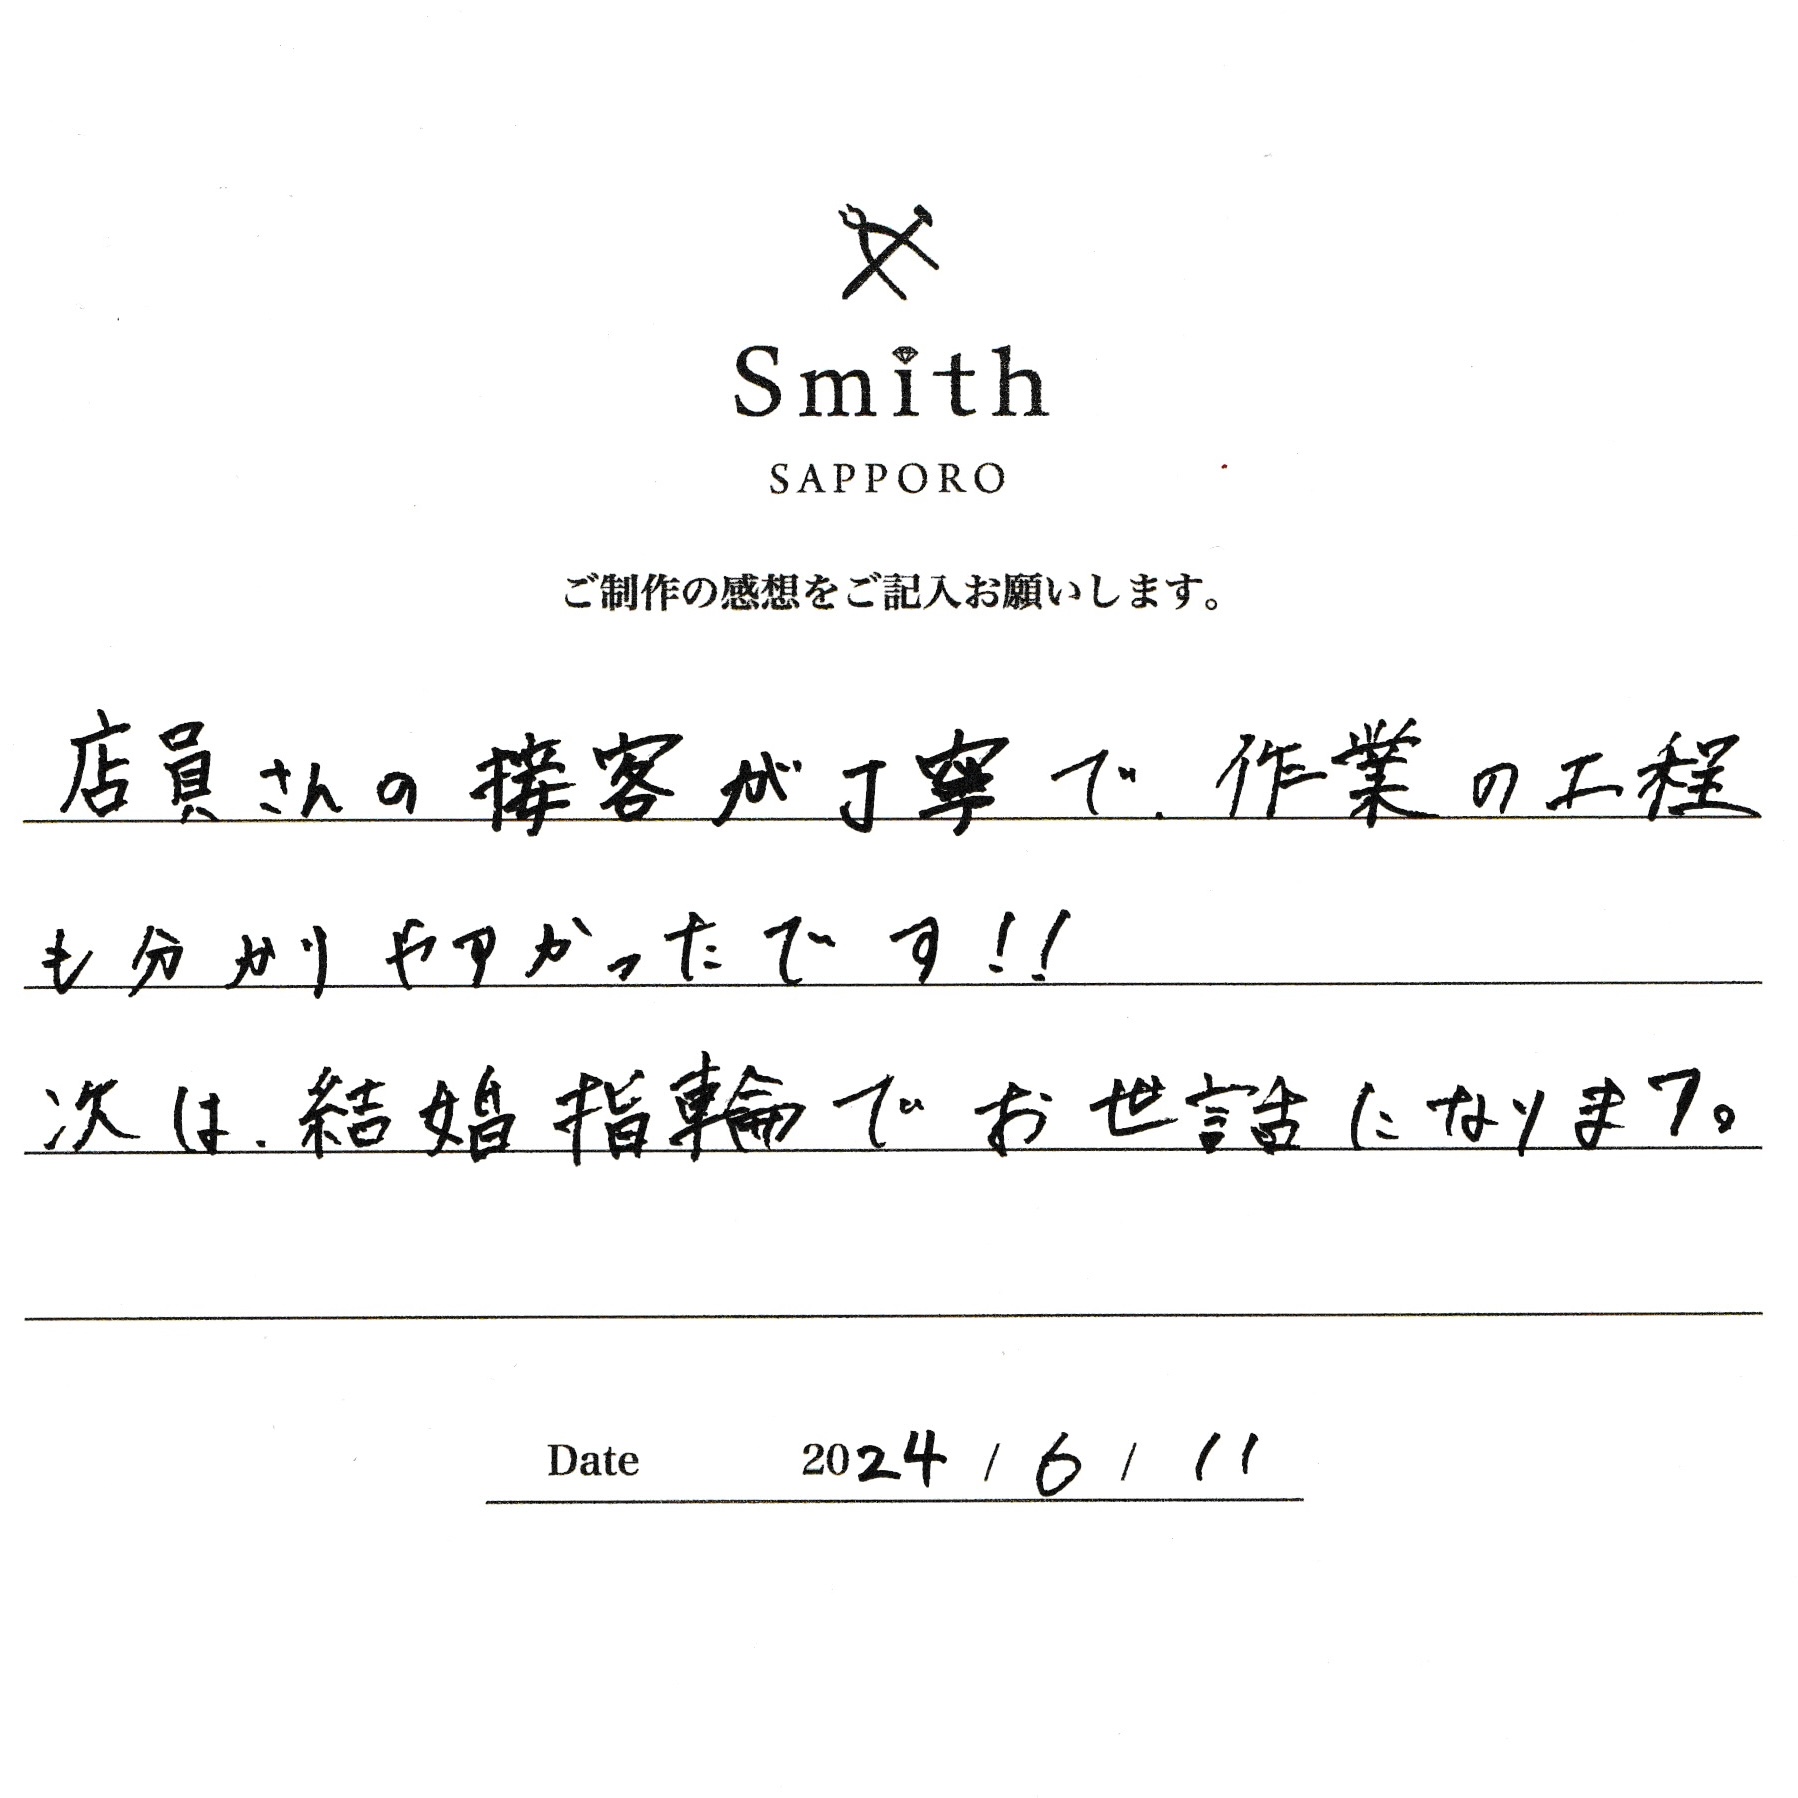 Smith
SAPPORO
ご制作の感想をご記入お願いします。
店員さんの接客が丁寧で、作業の工程
も分かりやすかったです!!
次は、結婚指輪でお世話になります。
Date 2024 / 6 / 11